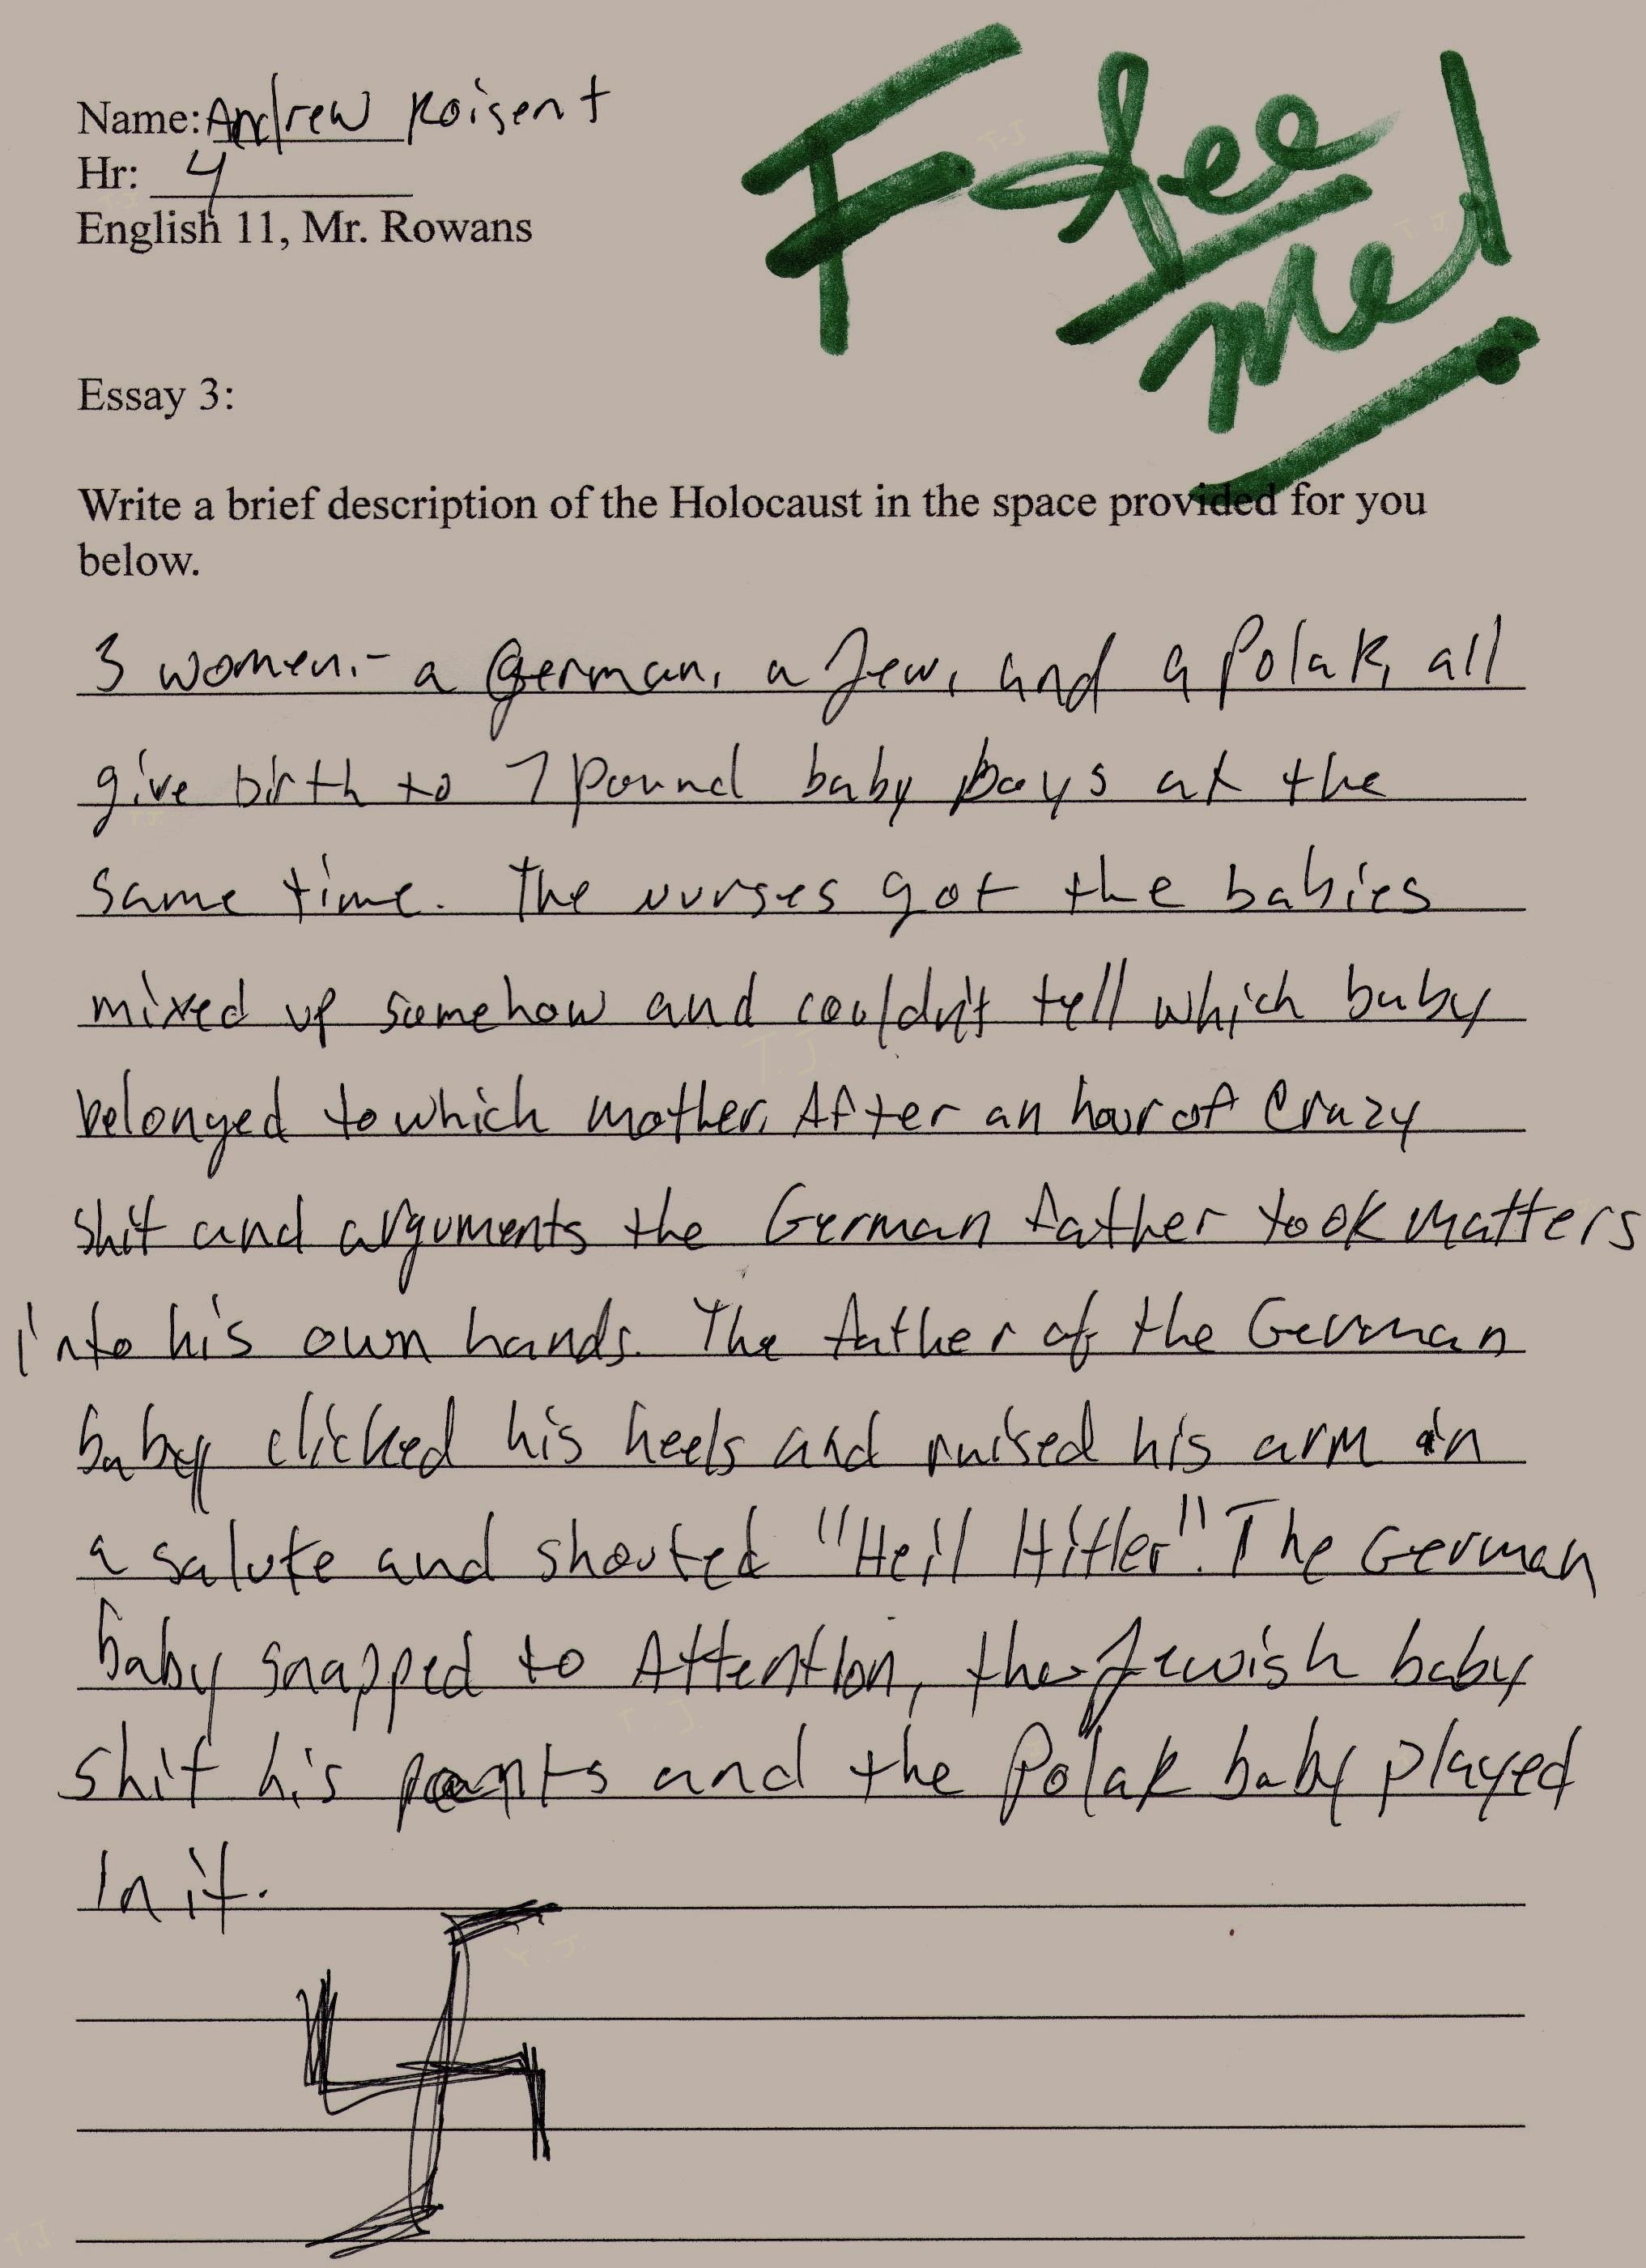 Name: Andrew Poisent
Hr: 4
English 11, Mr. Rowans
F- See
me!
Essay 3:
Write a brief description of the Holocaust in the space provided for you
below.
3 women.- a German, a Jew, and a Polak, all
give birth to 7 pound baby boys at the
same time. The nurses got the babies
mixed up somehow and couldn't tell which baby
belonged to which mother. After an hour of Crazy
shit and arguments the German father took matters
into his own hands. The father of the German
baby clicked his heels and raised his arm in
a salute and shouted "Heil Hitler". The German
baby snapped to Attention, the Jewish baby
shit his pants and the Polak baby played
in it.
T.J.